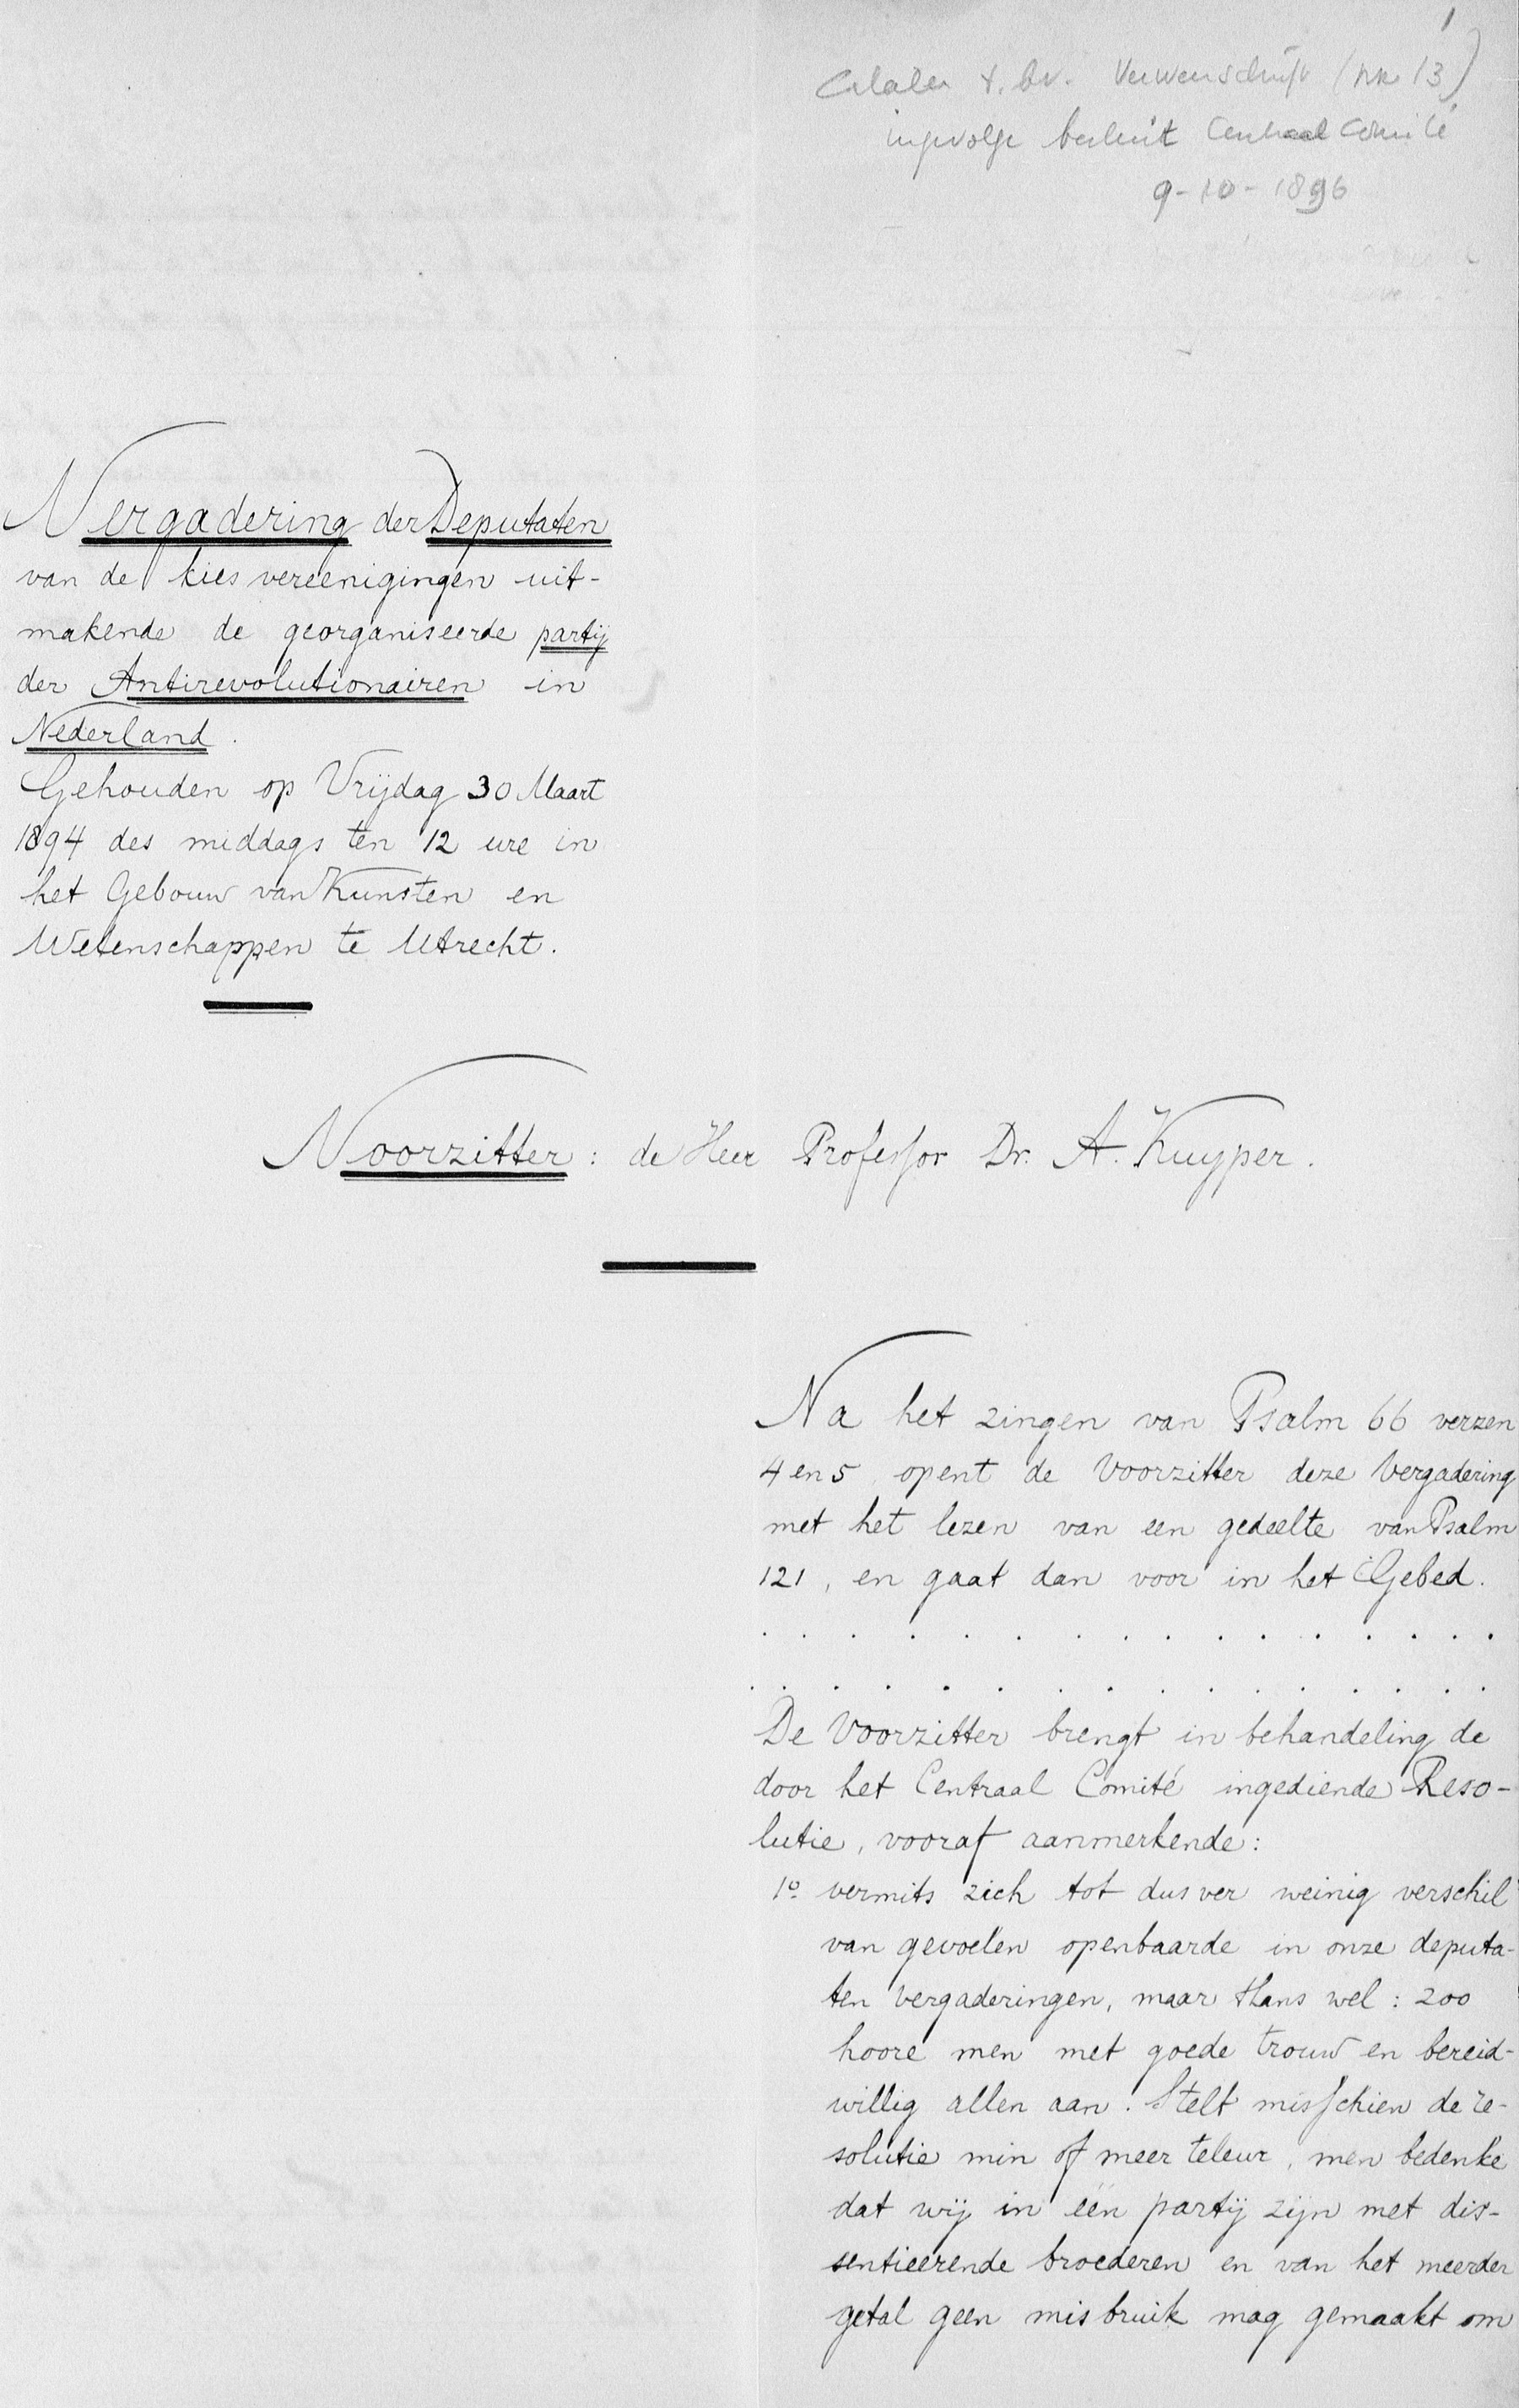 1
t. bv. Verweerschrift (nr 13)
ingevolge besluit Centraal Comité
9-10-1896
Vergadering der Deputaten
van de kiesvereenigingen uit-
makende de georganiseerde partij
der Antirevolutionairen in
Nederland.
Gehouden op Vrijdag 30 Maart
1894 des middags ten 12 ure in
het Gebouw van Kunsten en
Wetenschappen te Utrecht.
Voorzitter: de Heer Professor Dr. A. Kuyper.
Na het zingen van Psalm 66 verzen
4 en 5 opent de Voorzitter deze Vergadering
met het lezen van een gedeelte van Psalm
121, en gaat dan voor in het Gebed.
. . . . . . . . . . . . . . . .
. . . . . . . . . . . . . . . .
De Voorzitter brengt in behandeling de
door het Centraal Comité ingediende Reso-
lutie, vooraf aanmerkende:
1o. vermits zich tot dusver weinig verschil
van gevoelen openbaarde in onze deputa-
ten vergaderingen, maar thans wel: zoo
hoore men met goede trouw en bereid-
willig allen aan. Stelt misschien de re-
solutie min of meer teleur, men bedenke
dat wij in één partij zijn met dis-
sentieerende broederen en van het meerder
getal geen misbruik mag gemaakt om